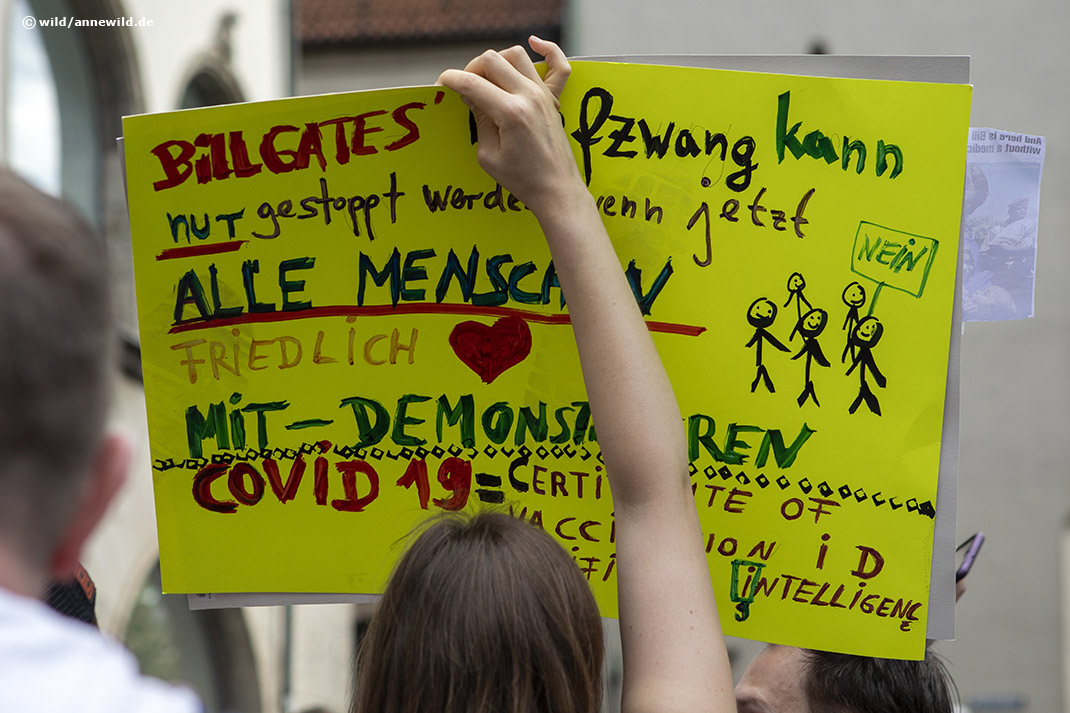 © wild/annewild.de
BillGATES' pfzwang kann
nur gestoppt werden wenn jetzt
ALLE MENSCHEN
FRIEDLICH
MiT-DEMONSTRIEREN
COViD 19 = CERTIFICATE OF
VACCINATION iD
INTELLIGENCE
NEiN
And here is Bill
without a medic